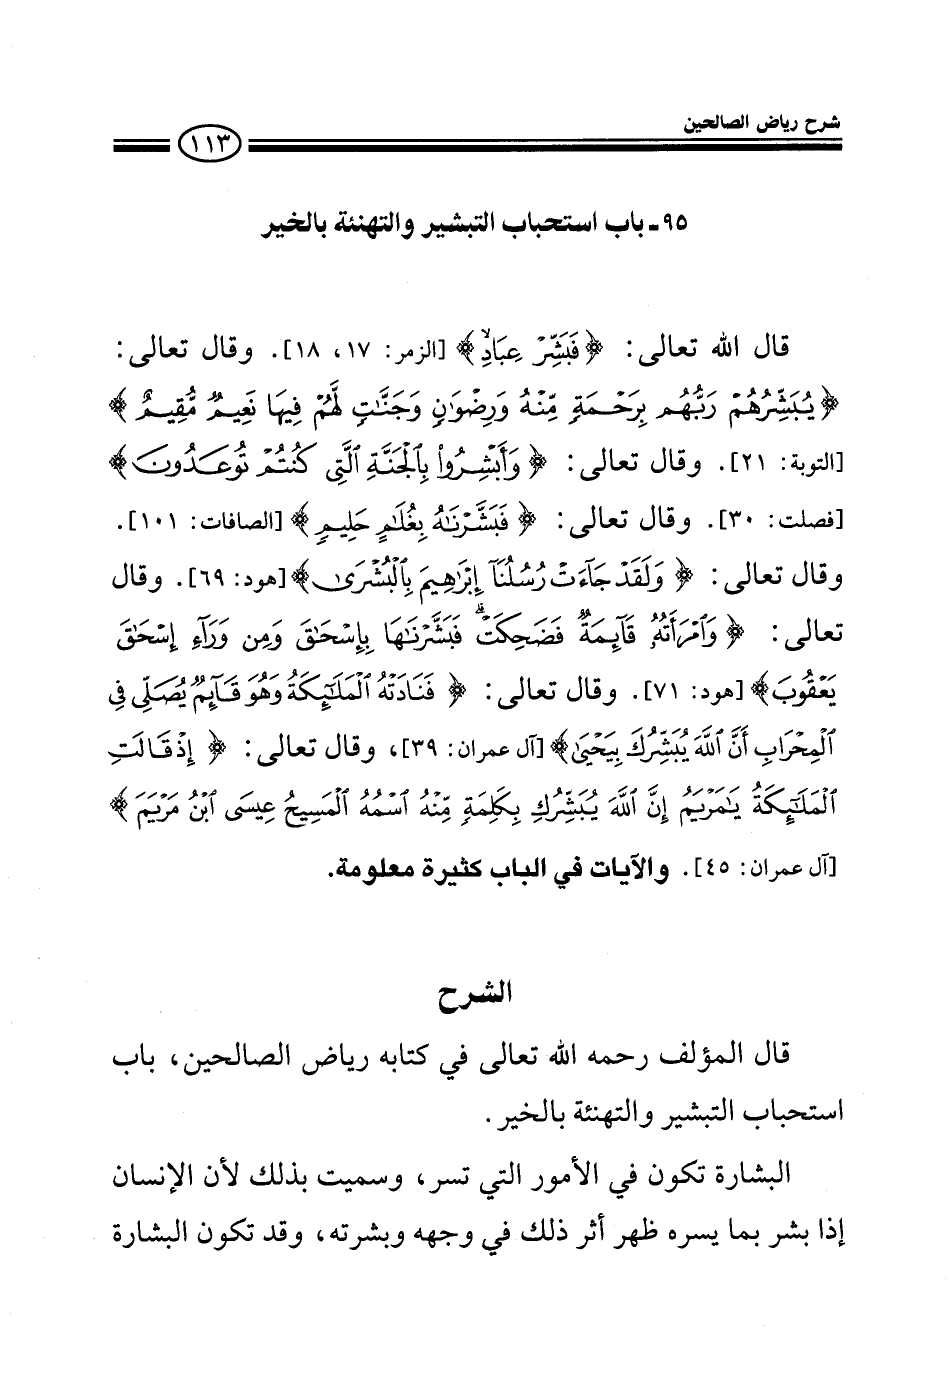 شرح رياض الصالحين
١١٣
٩٥ـ باب استحباب التبشير والتهنئة بالخير
قال الله تعالى: ﴿فَبَشِّرْ عِبَادِ﴾ [الزمر: ١٧، ١٨]. وقال تعالى:
﴿يُبَشِّرُهُمْ رَبُّهُم بِرَحْمَةٍ مِّنْهُ وَرِضْوَٰنٍ وَجَنَّٰتٍ لَّهُمْ فِيهَا نَعِيمٌ مُّقِيمٌ﴾
[التوبة: ٢١]. وقال تعالى: ﴿وَأَبْشِرُوا۟ بِالْجَنَّةِ الَّتِي كُنتُمْ تُوعَدُونَ﴾
[فصلت: ٣٠]. وقال تعالى: ﴿فَبَشَّرْنَٰهُ بِغُلَٰمٍ حَلِيمٍ﴾ [الصافات: ١٠١].
وقال تعالى: ﴿وَلَقَدْ جَآءَتْ رُسُلُنَآ إِبْرَٰهِيمَ بِالْبُشْرَىٰ﴾ [هود: ٦٩]. وقال
تعالى: ﴿وَامْرَأَتُهُۥ قَآئِمَةٌ فَضَحِكَتْ فَبَشَّرْنَٰهَا بِإِسْحَٰقَ وَمِن وَرَآءِ إِسْحَٰقَ
يَعْقُوبَ﴾ [هود: ٧١]. وقال تعالى: ﴿فَنَادَتْهُ الْمَلَٰٓئِكَةُ وَهُوَ قَآئِمٌ يُصَلِّي فِي
الْمِحْرَابِ أَنَّ اللَّهَ يُبَشِّرُكَ بِيَحْيَىٰ﴾ [آل عمران: ٣٩]، وقال تعالى: ﴿إِذْ قَالَتِ
الْمَلَٰٓئِكَةُ يَٰمَرْيَمُ إِنَّ اللَّهَ يُبَشِّرُكِ بِكَلِمَةٍ مِّنْهُ اسْمُهُ الْمَسِيحُ عِيسَى ابْنُ مَرْيَمَ﴾
[آل عمران: ٤٥]. والآيات في الباب كثيرة معلومة.
الشرح
قال المؤلف رحمه الله تعالى في كتابه رياض الصالحين، باب
استحباب التبشير والتهنئة بالخير.
البشارة تكون في الأمور التي تسر، وسميت بذلك لأن الإنسان
إذا بشر بما يسره ظهر أثر ذلك في وجهه وبشرته، وقد تكون البشارة